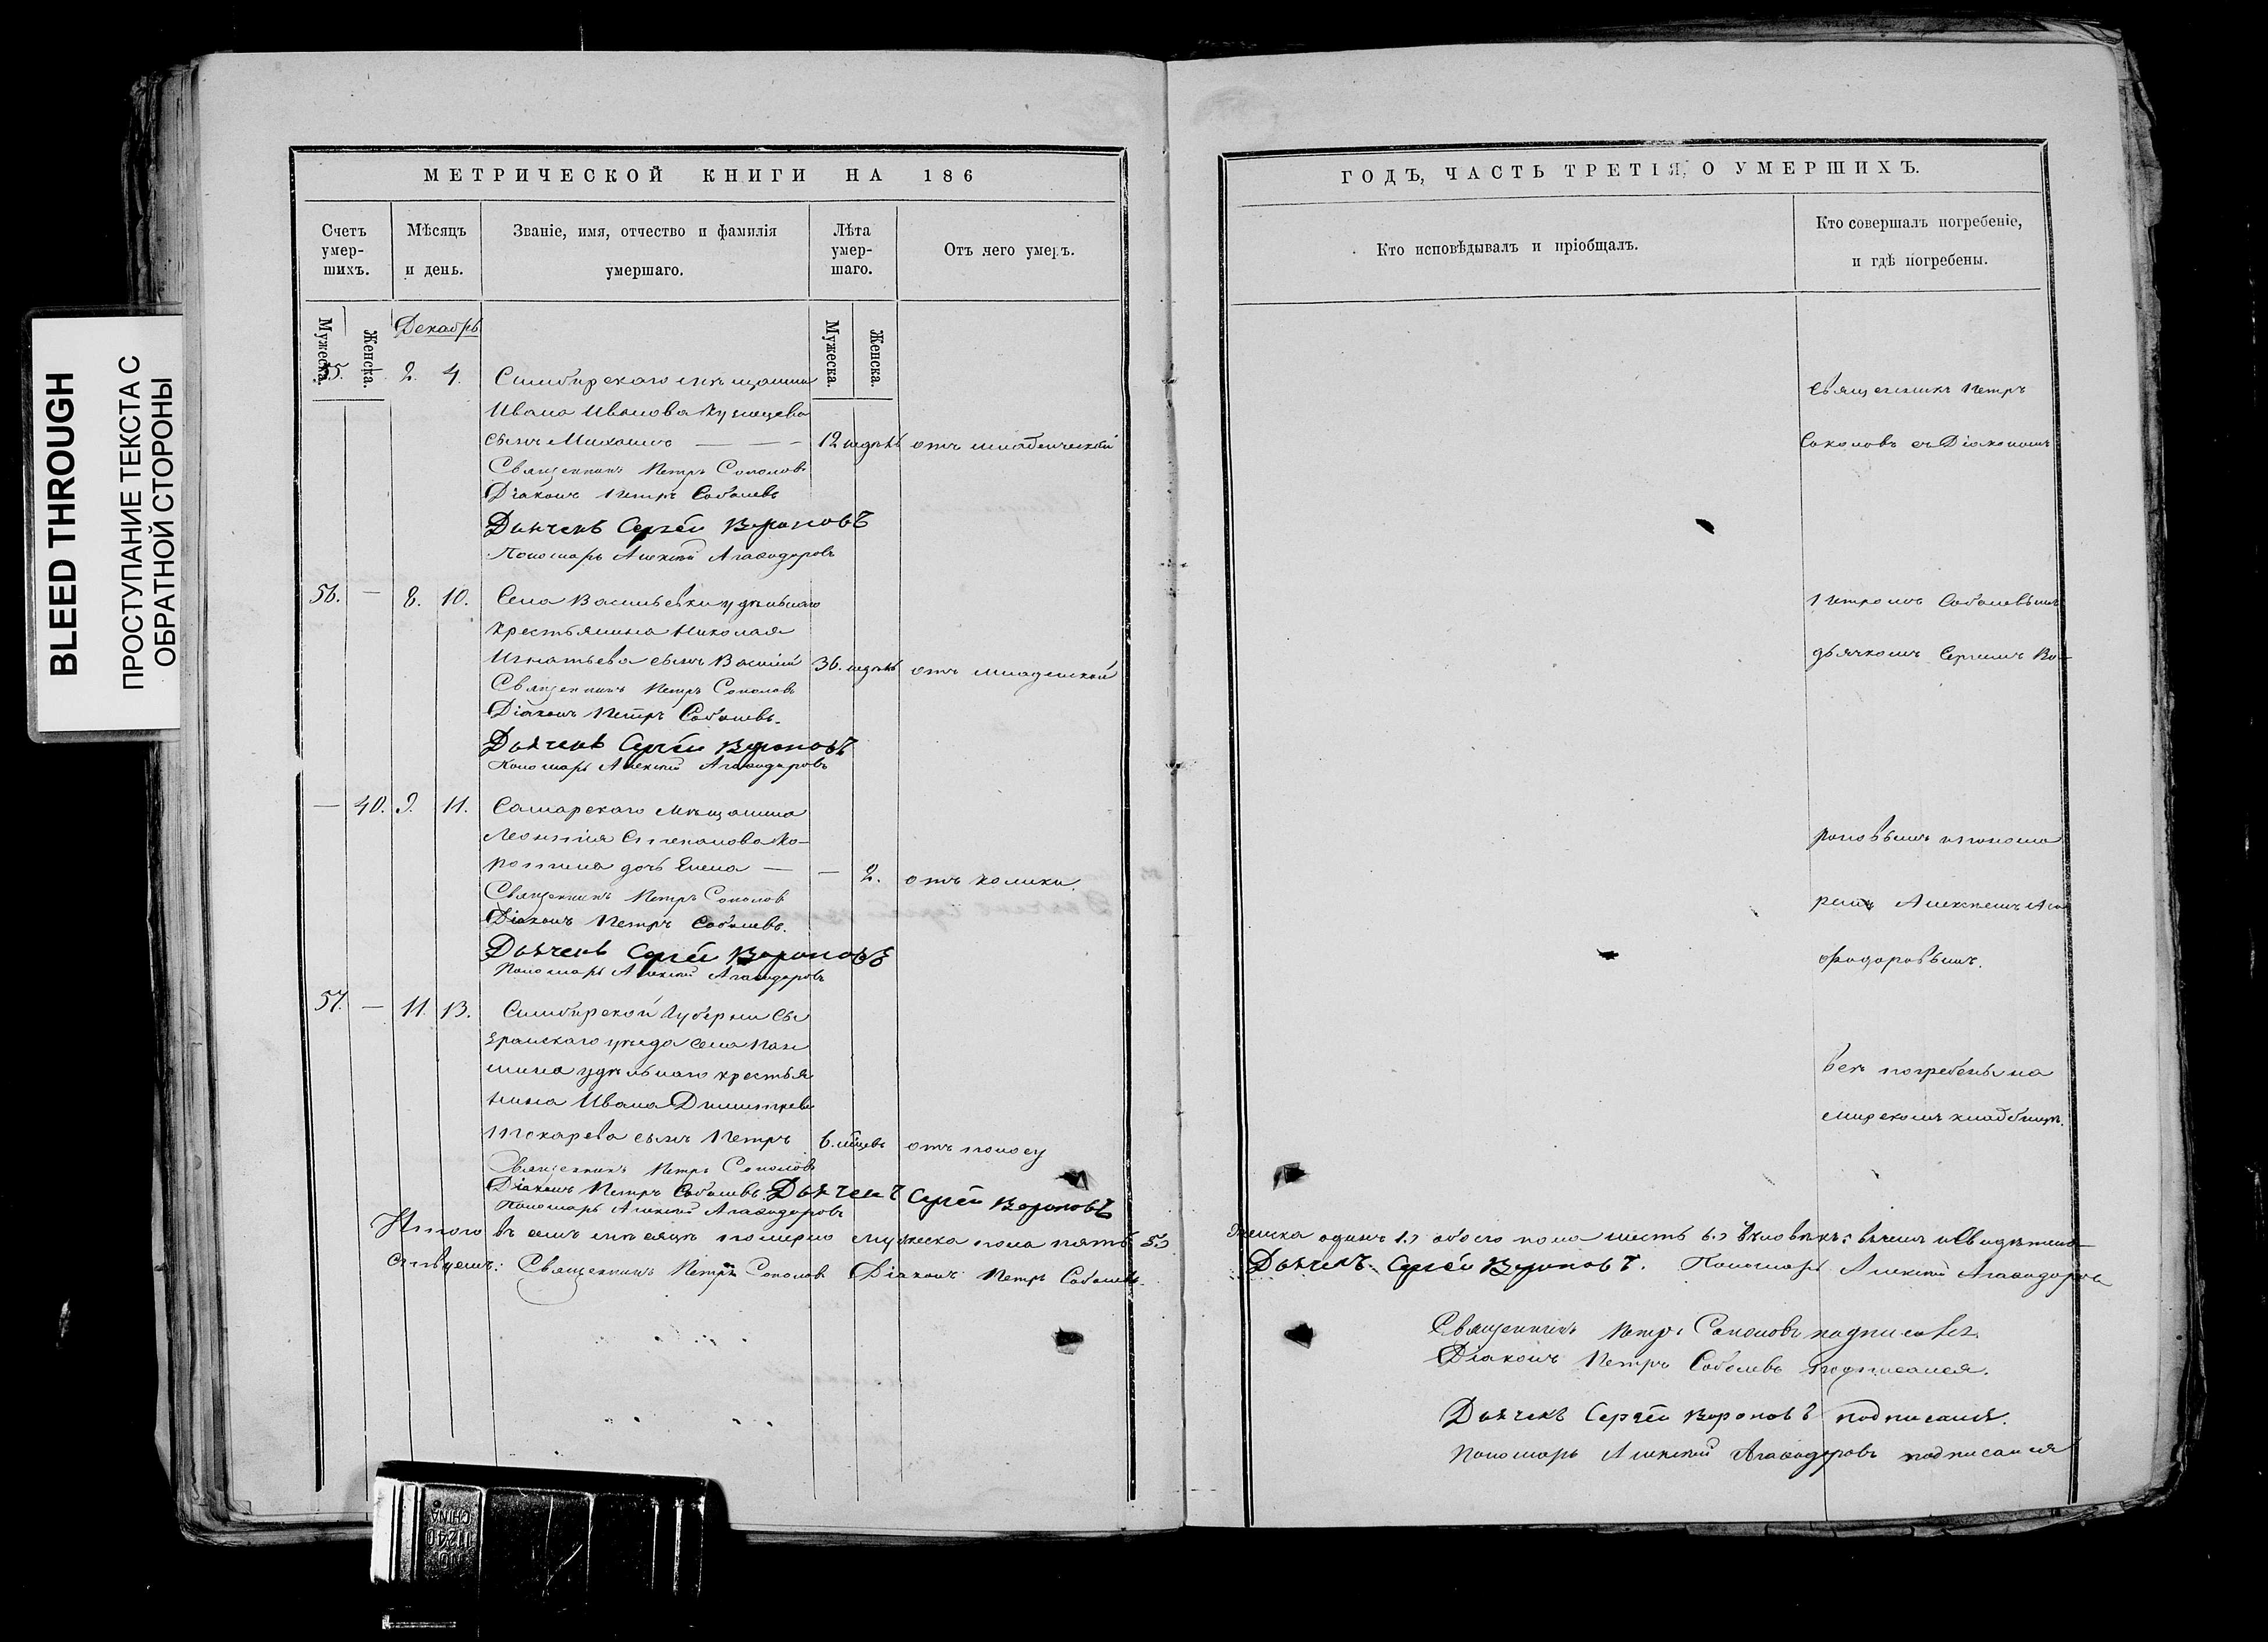 BLEED THROUGH
ПРОСТУПАНИЕ ТЕКСТА С
ОБРАТНОЙ СТОРОНЫ
МЕТРИЧЕСКОЙ КНИГИ НА 186
Счетъ умер-шихъ.
Мѣсяцъ и день.
Званіе, имя, отчество и фамилія умершаго.
Лѣта умер-шаго.
Отъ чего умеръ.
Мужеска.
Женска.
Мужеска.
Женска.
Декабрь
55. — 2. 4. Симбирскаго мѣщанина
Ивана Иванова Кузнецова
сынъ Михаилъ — — — 12 недѣль отъ младенческой
Священникъ Петръ Соколовъ
Діаконъ Петръ Соболевъ
Дьячекъ Сергѣй Вороновъ
Пономарь Алексѣй Агаѳодоровъ
56. — 8. 10. Села Васильевки удѣльнаго
крестьянина Николая
Игнатьева сынъ Василій 36. недѣль отъ младенской
Священникъ Петръ Соколовъ
Діаконъ Петръ Соболевъ.
Дьячекъ Сергѣй Вороновъ
Пономарь Алексѣй Агаѳодоровъ
— 40. 9. 11. Самарскаго мѣщанина
Леонтія Степанова Ко-
ропина дочь Елена — — 2. отъ колики.
Священникъ Петръ Соколов
Діаконъ Петръ Соболевъ.
Дьячекъ Сергѣй Вороновъ
Пономарь Алексѣй Агаѳодоровъ
57. — 11. 13. Симбирской Губерни Сы
зранскаго уѣзда села Пан
шина удѣльнаго крестья
нина Ивана Димитріева
Токарева сынъ Петръ 6. мѣцевъ отъ поносу
Священникъ Петръ Соколовъ
Діаконъ Петръ Соболевъ. Дьячекъ Сергѣй Вороновъ
Пономарь Алексѣй Агаѳодоровъ
Итого въ семъ мѣсяцѣ померло мужеска пола пять 5.
Священникъ Петръ Соколов Діаконъ Петръ Соболевъ.
ГОДЪ, ЧАСТЬ ТРЕТІЯ, О УМЕРШИХЪ.
Кто исповѣдывалъ и пріобщалъ.
Кто совершалъ погребеніе,
и гдѣ погребены.
Священникъ Петръ
Соколовъ съ Діакономъ
Петромъ Соболевымъ
дьячкомъ Сергѣемъ Во-
роновымъ и понома
ремъ Алексѣемъ Ага
ѳодоровымъ.
всѣ погребены на
мирскомъ кладбищѣ.
женска одинъ 1. обоего пола шесть 6.
Дьячекъ Сергѣй Вороновъ. Пономарь Алексѣй Агаѳодоров
Священникъ Петръ Соколовъ подписался.
Діаконъ Петръ Соболевъ подписался.
Дьячекъ Сергѣй Вороновъ подписался.
Пономарь Алексѣй Агаѳодоровъ подписался